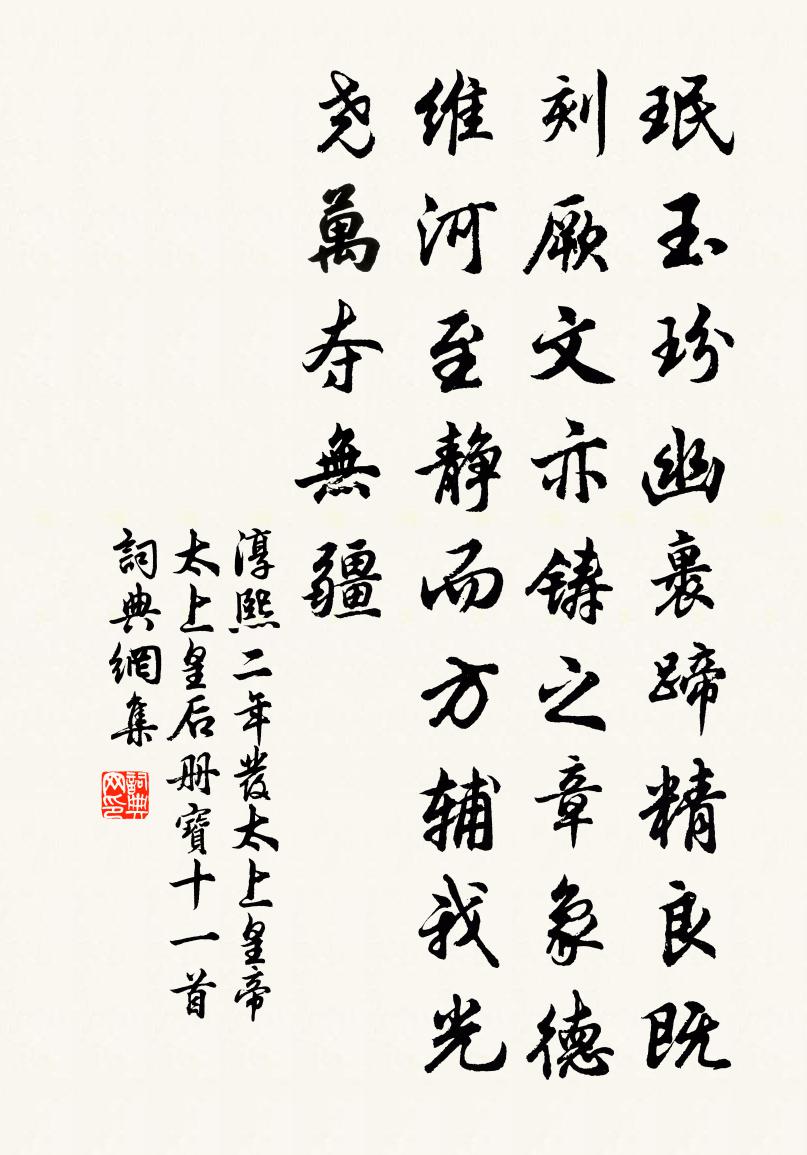 珉玉玢豳裹蹄精良既
刻厥文亦鑄之章象德
維河至静而方辅我光
尧萬夀無疆
淳熙二年發太上皇帝
太上皇后册寶十一首
詞典網集
詞典网印